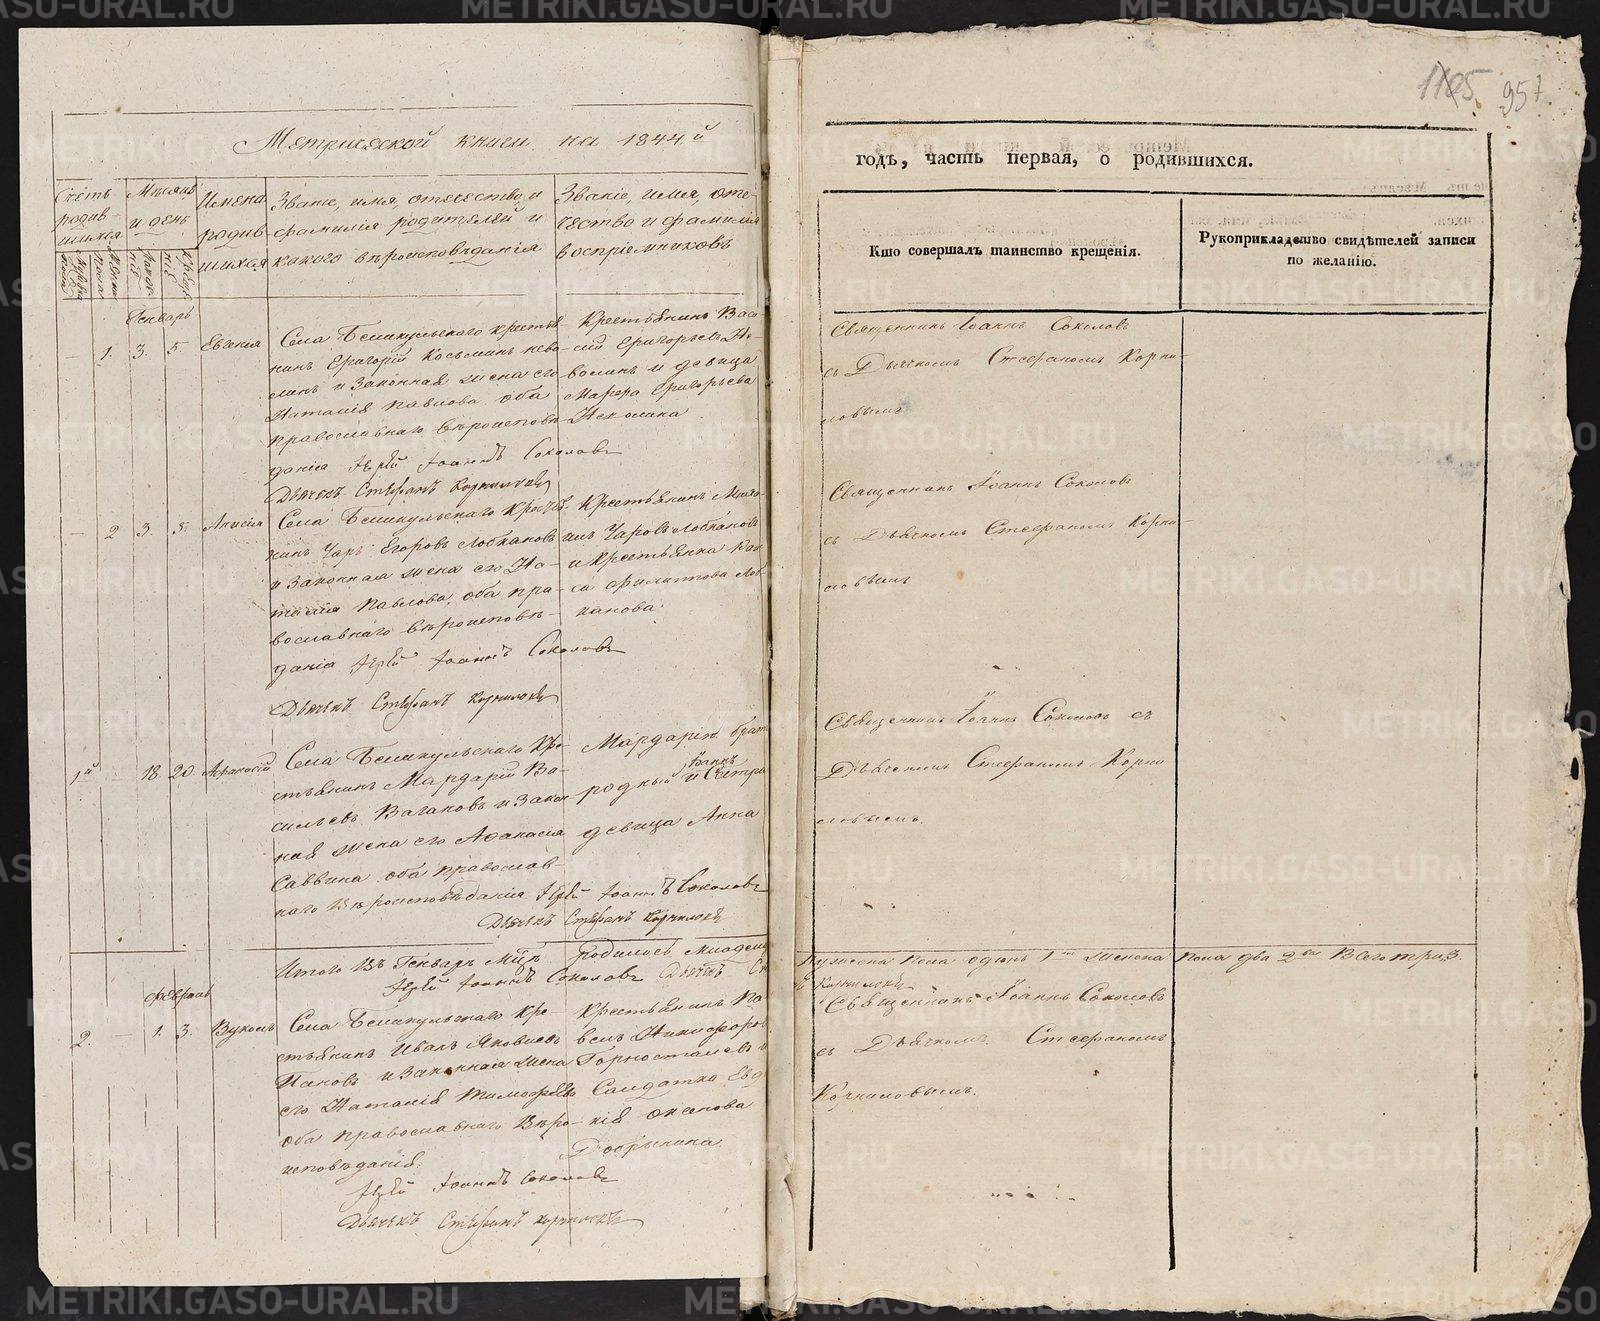 1105 957
Метрической книги на 1844й
годъ, часть первая, о родившихся.
Счетъ родившихся
Мѣсяцъ и день
Имена родившихся
Званіе, имя, отечество, и фамилія родителей и какого вѣроисповѣданія
Званіе, имя, отечество и фамилія воспріемниковъ
Кто совершалъ таинство крещенія.
Рукоприкладство свидѣтелей записи
по желанію.
Генварь
1. 3. 5. Евгенія
Села Бѣликульскаго крестья-
нинъ Григорій Косьминъ
и Законная жена его
Наталія Павлова оба
православнаго вѣроисповѣ-
данія Іерей Іоаннъ Соколовъ
Дьячекъ Стефанъ Корниловъ
Крестьянинъ Васи-
лій Григорьевъ
и девица
Марѳа Григорьева
Священникъ Іоаннъ Соколовъ
съ Дьячкомъ Стефаномъ Корни-
ловымъ
2 3. 5. Анисія
Села Бѣликульскаго
Егоровъ Лобкановъ
и Законная жена его На-
талія Павлова, оба пра-
вославнаго вѣроисповѣ-
данія Іерей Іоаннъ Соколовъ
Дьячекъ Стефанъ Корниловъ
Крестьянинъ
Лобкановъ
и Крестьянка
Филиппова Лоб-
канова
Священникъ Іоаннъ Соколовъ
съ Дьячкомъ Стефаномъ Корни-
ловымъ
1й 18 20 Аѳанасій
Села Бѣликульскаго Кре-
стьянинъ Мардарій Ва-
сильевъ Вагановъ и Закон-
ная жена его Аѳанасія
Саввина оба православ-
наго Вѣроисповѣданія Іерей Іоаннъ Соколовъ
Дьячекъ Стефанъ Корниловъ
Мардарія брат
родный Іоаннъ и Сестра
девица Анна
Священникъ Іоаннъ Соколовъ съ
Дьячкомъ Стефаномъ Корни
ловымъ.
Итого Въ Генварь Мцѣ Родилось Младен
мужеска пола одинъ 1 женска пола два 2 Всего три, 3.
Іерей Іоаннъ Соколовъ Дьячекъ Ст
Корниловъ
Февраль
2. 1. 3. Вуколъ
Села Бѣликульскаго Кре-
стьянинъ Иванъ Яковлевъ
Пановъ и Законная жена
его Наталія Тимофѣева
оба православнаго Вѣро-
исповѣданія.
Іерей Іоаннъ Соколовъ
Дьячекъ Стефанъ Корниловъ
Крестьянинъ Па
велъ Никифоров
Горносталевъ и
Салдатка Евд
кія
Добрынина
Священникъ Іоаннъ Соколовъ
съ Дьячкомъ Стефаномъ
Корниловымъ.
METRIKI.GASO-URAL.RU